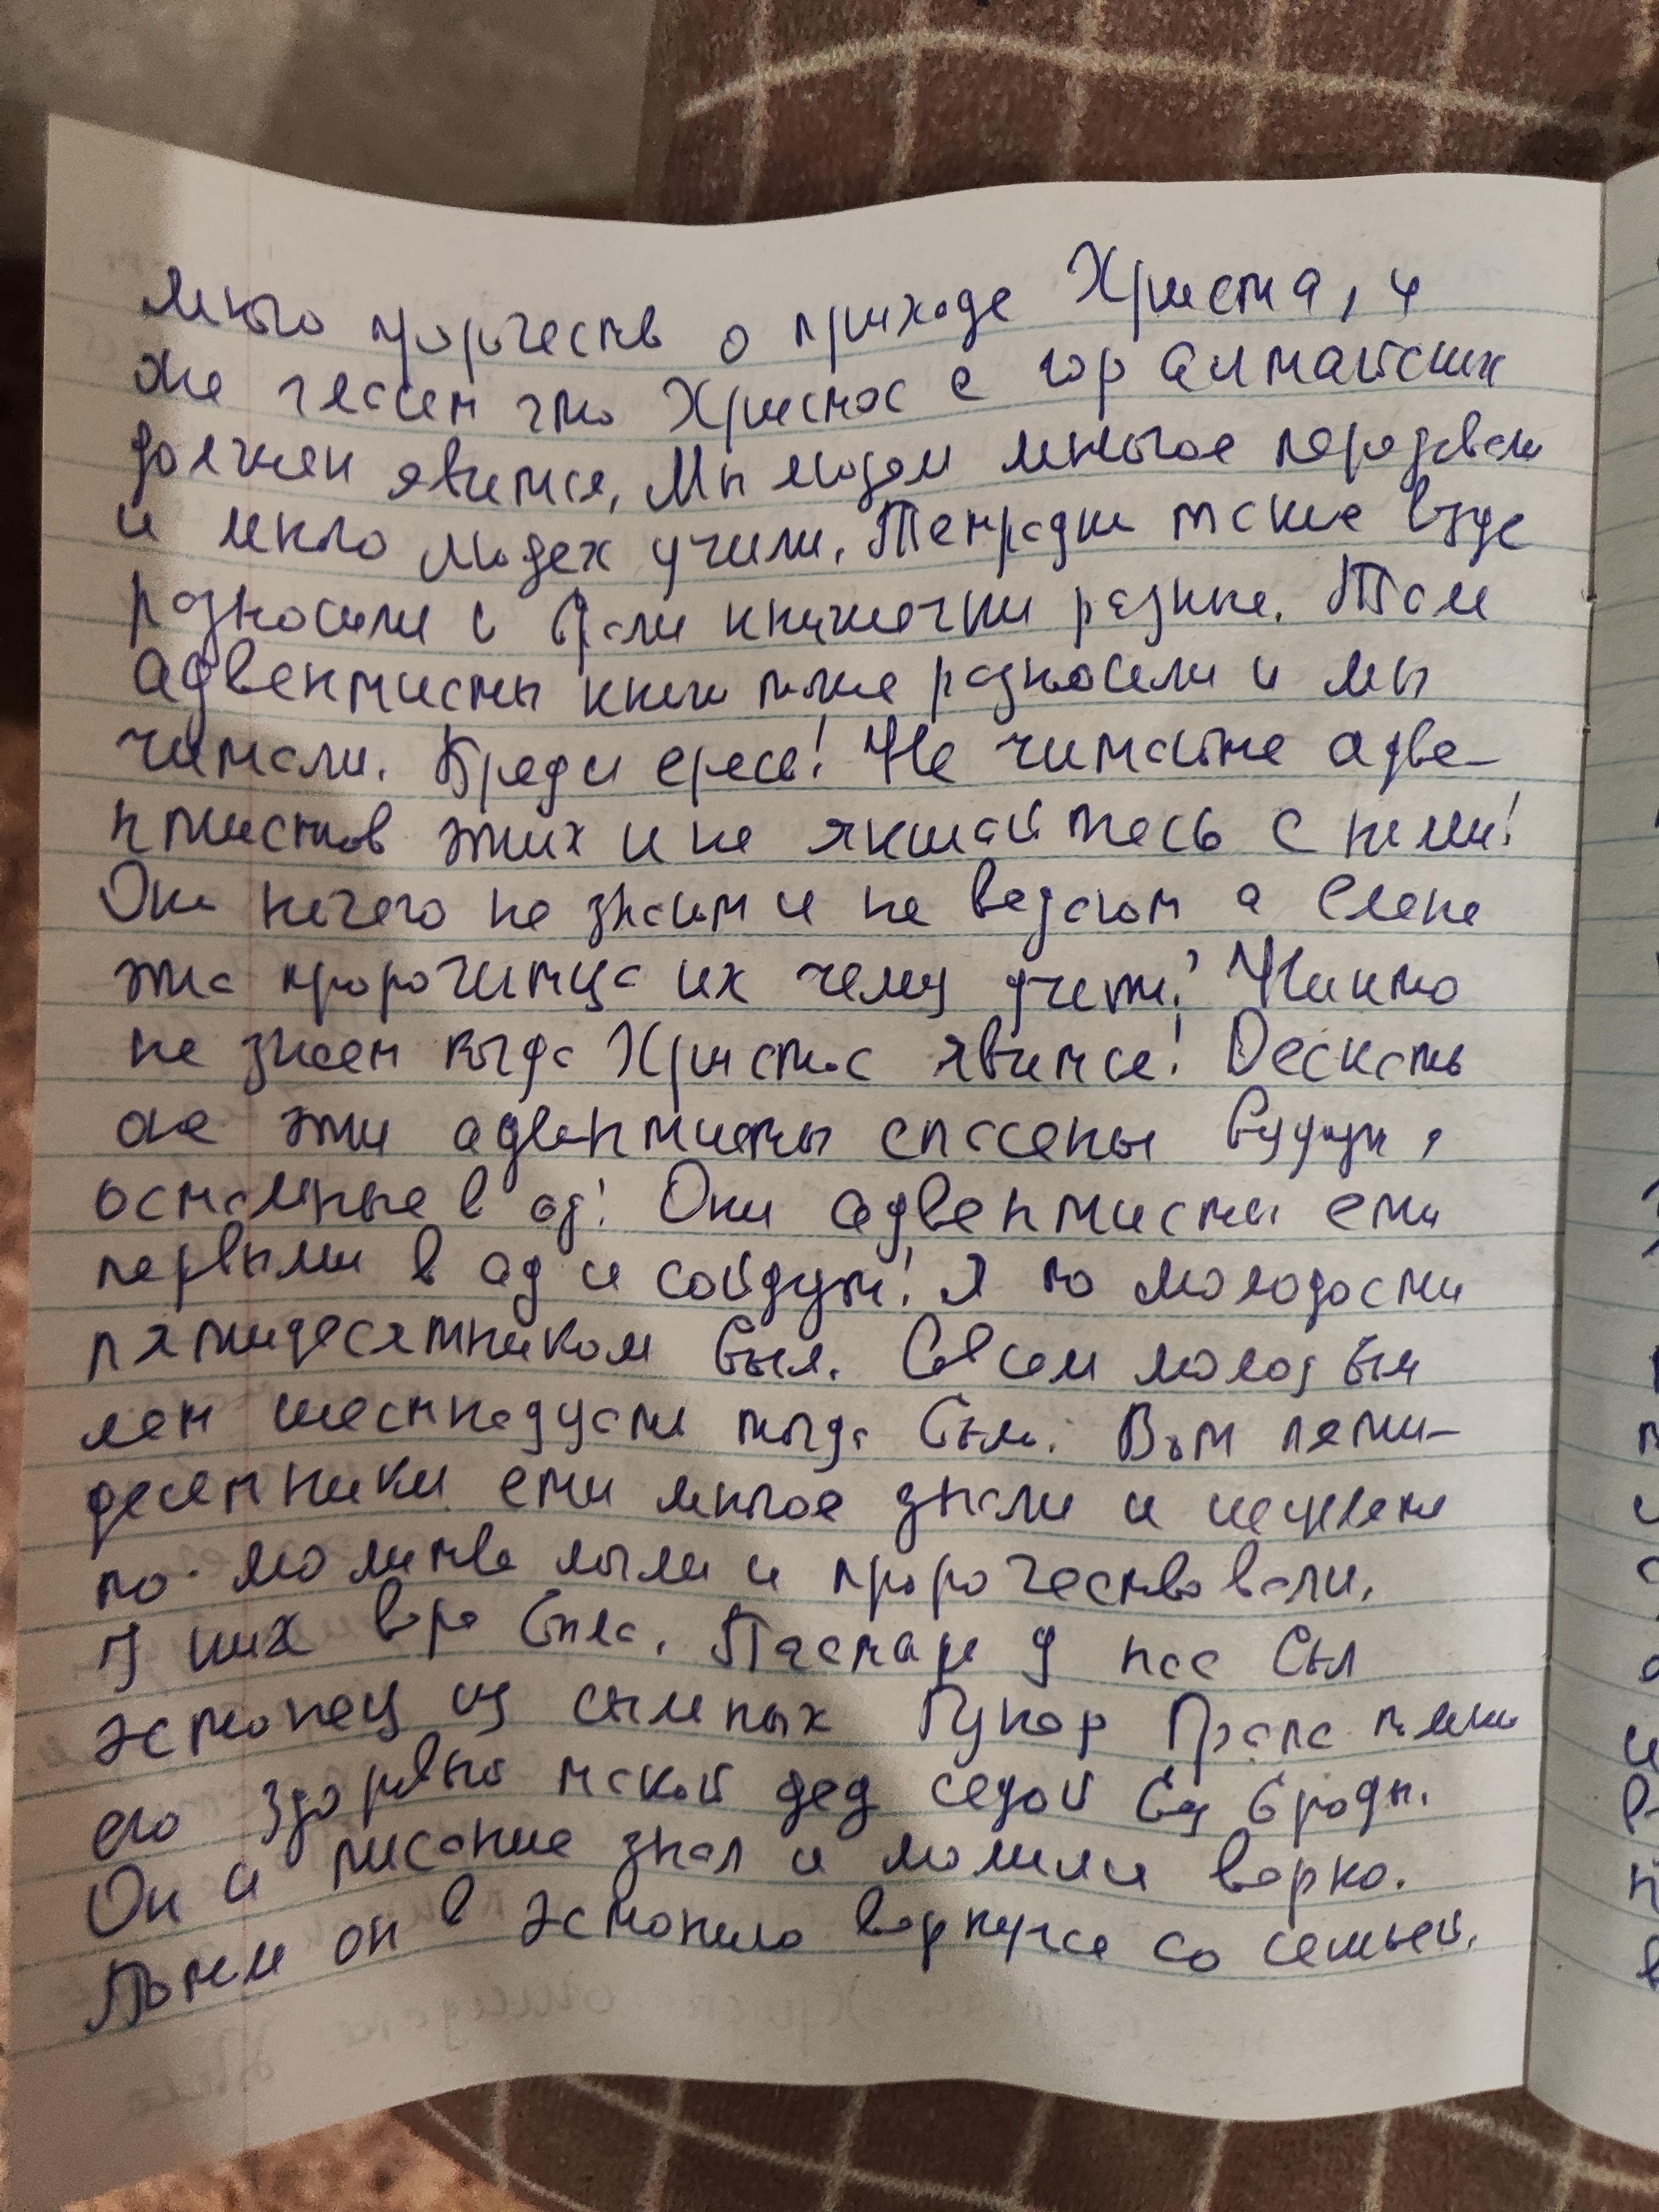 много пророчеств о приходе Христа, и
же гласит что Христос с гор алтайских
должен явится, Мы людям многое передавали
и много людех учили, Тетрадки такие везде
разносили и брали книжечки разные. Там
адвентисты книги тоже разносили и мы
читали. Бред и ересь! Не читайте адве-
нтистов этих и не якшайтесь с ними!
Они ничего не знают и не ведают а Елена
эта пророчитца их чему учит? Никто
не знает когда Христос явится! Дескать
ое эти адвентисты спасены будут,
остальные в ад! Они адвентисты ети
первыми в ад и сойдут! Я по молодости
пятидесятником был. Совсем молодым
лет шестнадцати тогда был. Вот пяти-
десятники ети многое знали и исцелене
по молитве мыли и пророчествовали,
У них вера была. Пастаре у нас был
эстонец из сыльных Гунар Прапс тоже
его здоровый такой дед седой без броды.
Он и писание знал и молили верно.
Потем он в эстонию вернулся со семьей,